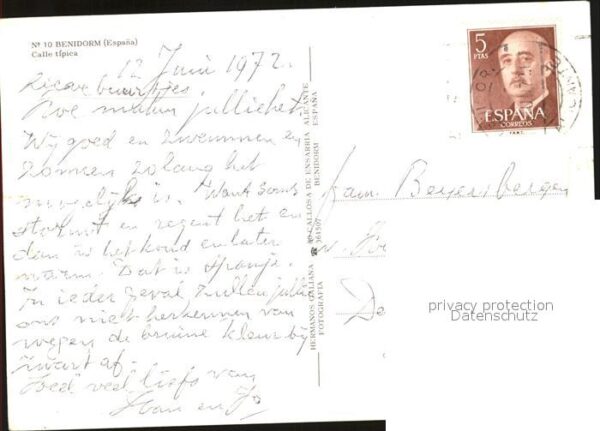 Nº 10 BENIDORM (España)
Calle típica
12 Juni 1972.
Lieve buurtjes!
Hoe maken jullie het
Wij goed en zwemmen en
zonnen zolang het
mogelijk is. Want soms
stormt en regent het en
dan is het koud en later
warm. Dat is Spanje.
In ieder geval zullen jullie
ons niet herkennen van
wegen de bruine kleur bij
zwart af.
Heel veel liefs van
en Jo
HERMANOS GALIANA
FOTOGRAFIA
CALLOSA DE ENSARRIA ALICANTE
BENIDORM ESPAÑA
5
PTAS
ESPAÑA
CORREOS
Fam. Beyersbergen
privacy protection
Datenschutz